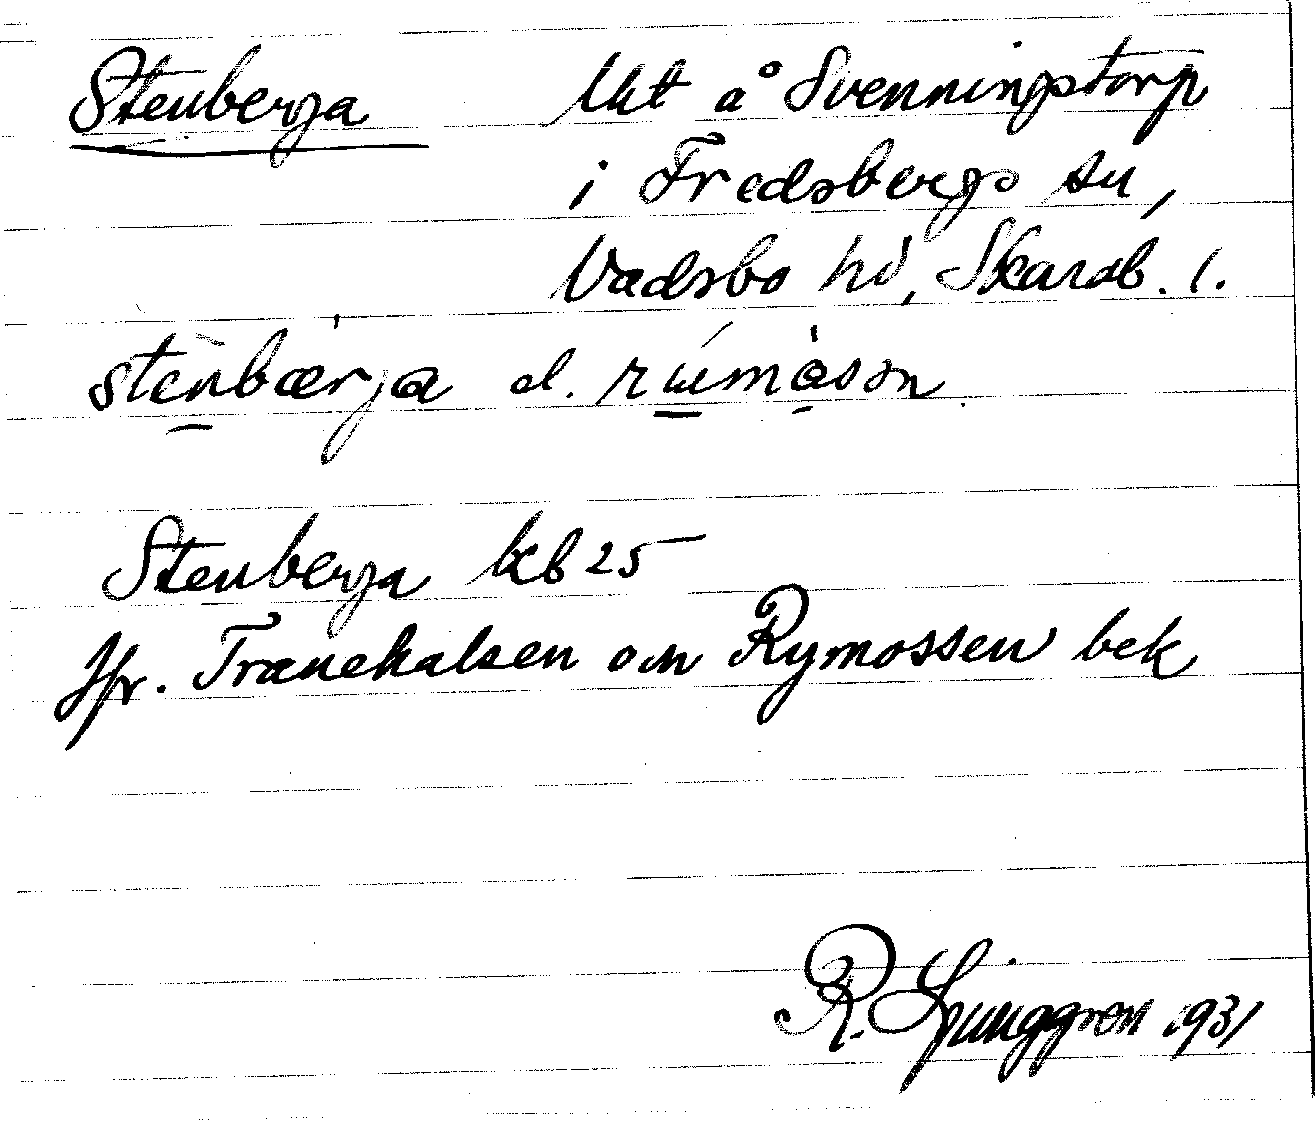 Stenberga Ukt å Svenningstorp
i Fredsbergs sn,
Vadsbo hd, Skarab. l.
stenbærja el. rumåsän
Stenberga kb 25
Jfr. Tranekalsen om Rymossen bek
R. Ljunggren 1931